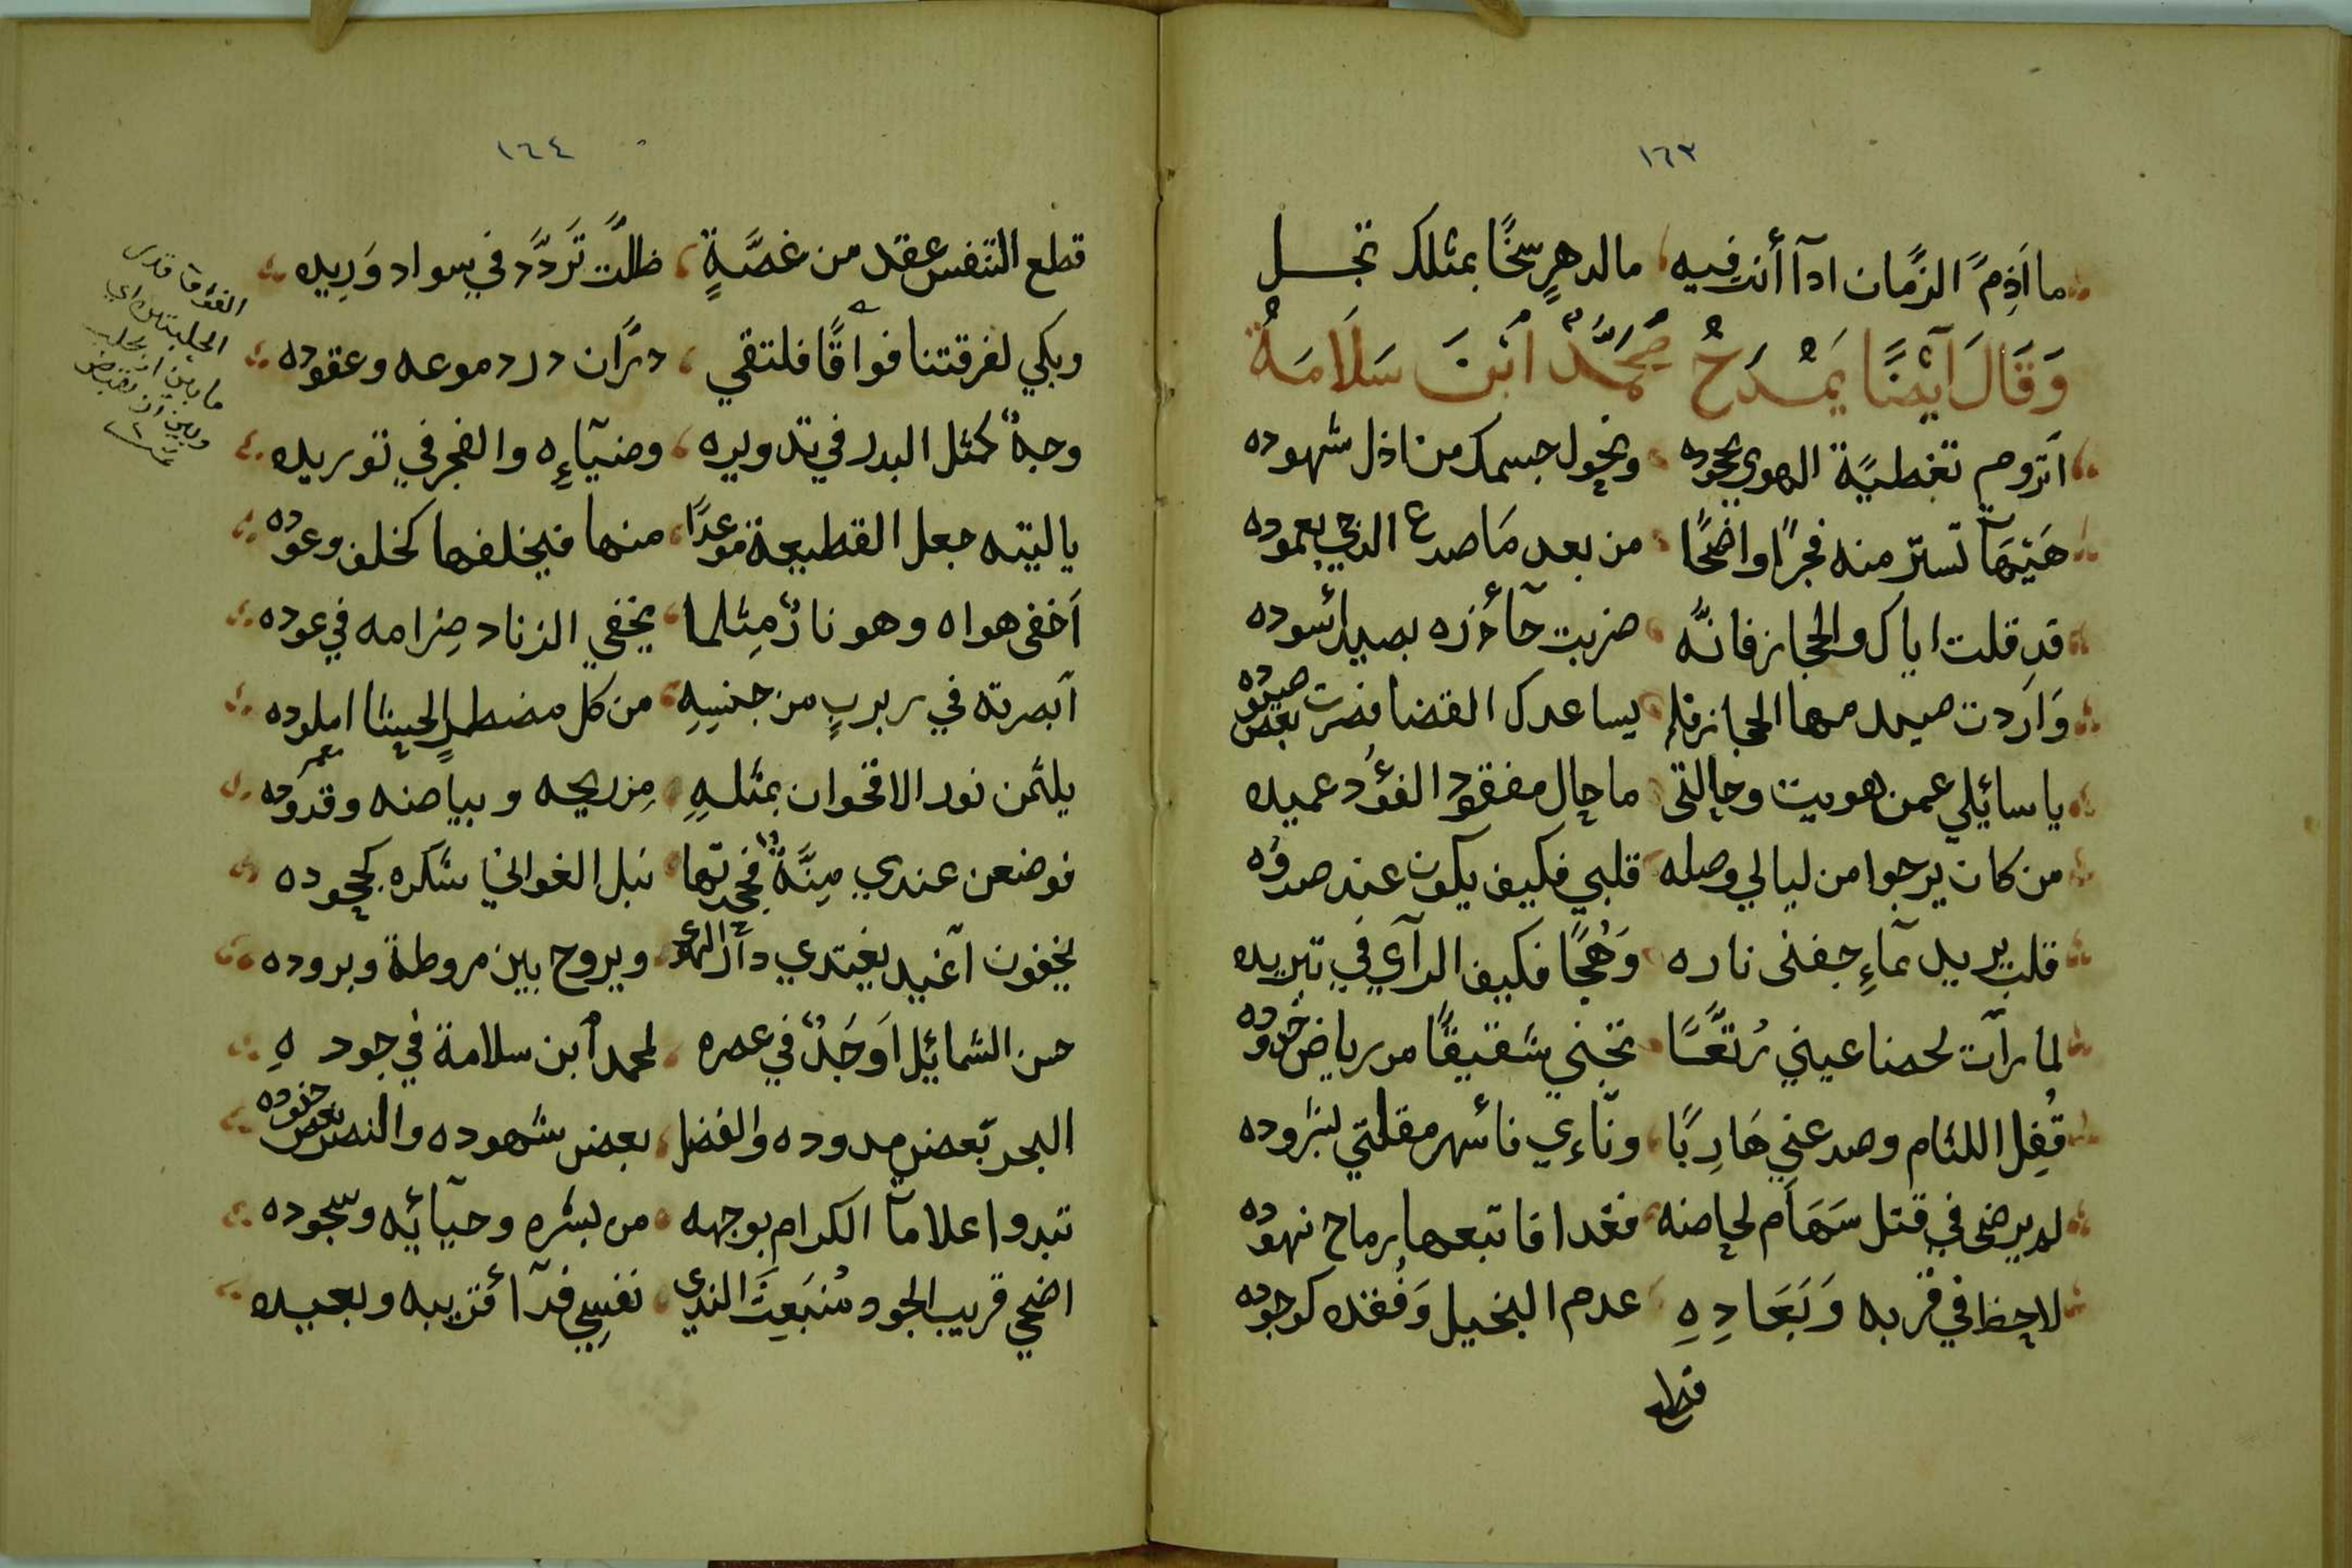 ١٦٣
ما اَذِمّ الزّمان ادآ أنت فيه مالدهرٍ سخًا بمثلك تجــل
وَقَالَ اَيْضًا يَمْدَحُ مُحَمَّدْ ابْنَ سَلَامَةُ
اَتروم تغطيًة الهوي بجحوده ونحول جسمك من اذل شهوده
هَيْهَآ تستر منه فجرًا واضحًا من بعد مَا صدع الدجي بعموده
قد قلت اياك والحجاز فانَّه ضربت جآذره بصيد اُسوده
وَاَردت صيد مها الحجاز فلم يساعدك القضا فصرت بعض صيوده
يا سائلي عمن هويت وحالتي ما حال مفقود الفؤد عميده
من كان يرجوا من ليالي وصله قلبي فكيف يكون عند صدوده
قلب يريد بمآءِ جفنى ناره وَهُجًا فكيف الرآي في تبريده
لما رآت لحضنا عيني رُتَّعًا تجني شقيقًا من رياض خدوده
قُفِل اللثام وصد عني هَارِبًا ونآءي فأسهر مقلتي لشروده
لم يرضى في قتل سَهَام لحاضه فغدا فاتبعها برماح نهوده
لاحظ في قربه وَبَعَادِهِ عدم البخيل وَفُقده كوجوده
قطع
١٦٤
قطع التنفس عقد من غصَّةٍ ظلّت تَردَّد في سواد وَرِيده
وبكي لفرقتنا فواقًا فلتقي درّان درد موعه وعقوده
وجهٌ كمثل البدر في تدويره وضيآءِه والفجر في توريده
يا ليته جعل القطيعة موعدًا منها فيخلفها كخلف وعوده
اَخفى هواه وهو نارٌ مِثلما يخفي الزناد ضِرامه في عوده
اَبصرته في ربربٍ من جنسِهِ من كل مضطرٍ الحيثا املوده
يلثمن نور الاقحوان بمثلهِ مِن ريحه وبياضه وقدوده
فوضعن عندي مِنَّةً فجحدتها نبل الغواني شكره كجحوده
يخفون اَغيد يغتدي دآر الهوى ويروح بين مروطة وبروده
حسن الشمائيل اَوحَدٌ في عصره لمحمد اُبن سلامة في جوده
البحر بَعض مدوده والفضل بعض شهوده والنصر بعض جنوده
تبدوا علامآ الكرام بوجهه من بشره وحيآئه وسجوده
اضحي قريب الجود مُنبَعِثَ الندي نفسِي فدآ اُقريبه وبعيده
الفواقا قدر
الحلبتين اي
ما بين ان يحلب
وبين ان تقبض